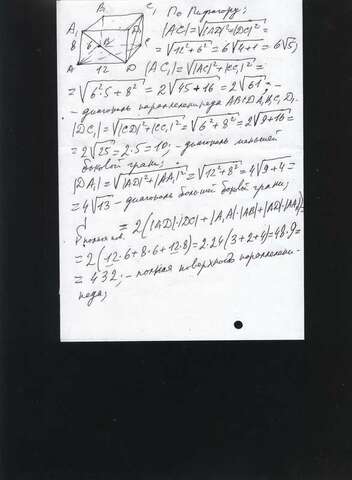 B₁ C₁ По Пифагору:
A₁ D₁ |AC| = √|AD|²+|DC|² =
8 6 B C = √12²+6² = 6√4+1 = 6√5;
A 12 D |AC₁| = √|AC|²+|CC₁|² =
= √6²·5+8² = 2√45+16 = 2√61; –
– диагональ параллелепипеда ABCDA₁B₁C₁D₁.
|DC₁| = √|CD|²+|CC₁|² = √6²+8² = 2√9+16 =
= 2√25 = 2·5 = 10; – диагональ меньшей
боковой грани;
|DA₁| = √|AD|²+|AA₁|² = √12²+8² = 4√9+4 =
= 4√13 – диагональ большей боковой грани;
S полн. пов. = 2(|AD|·|DC|+|A₁A|·|AB|+|AD|·|AA₁|) =
= 2(12·6+8·6+12·8) = 2·24(3+2+4) = 48·9 =
= 432; – полная поверхность параллелепи-
педа;